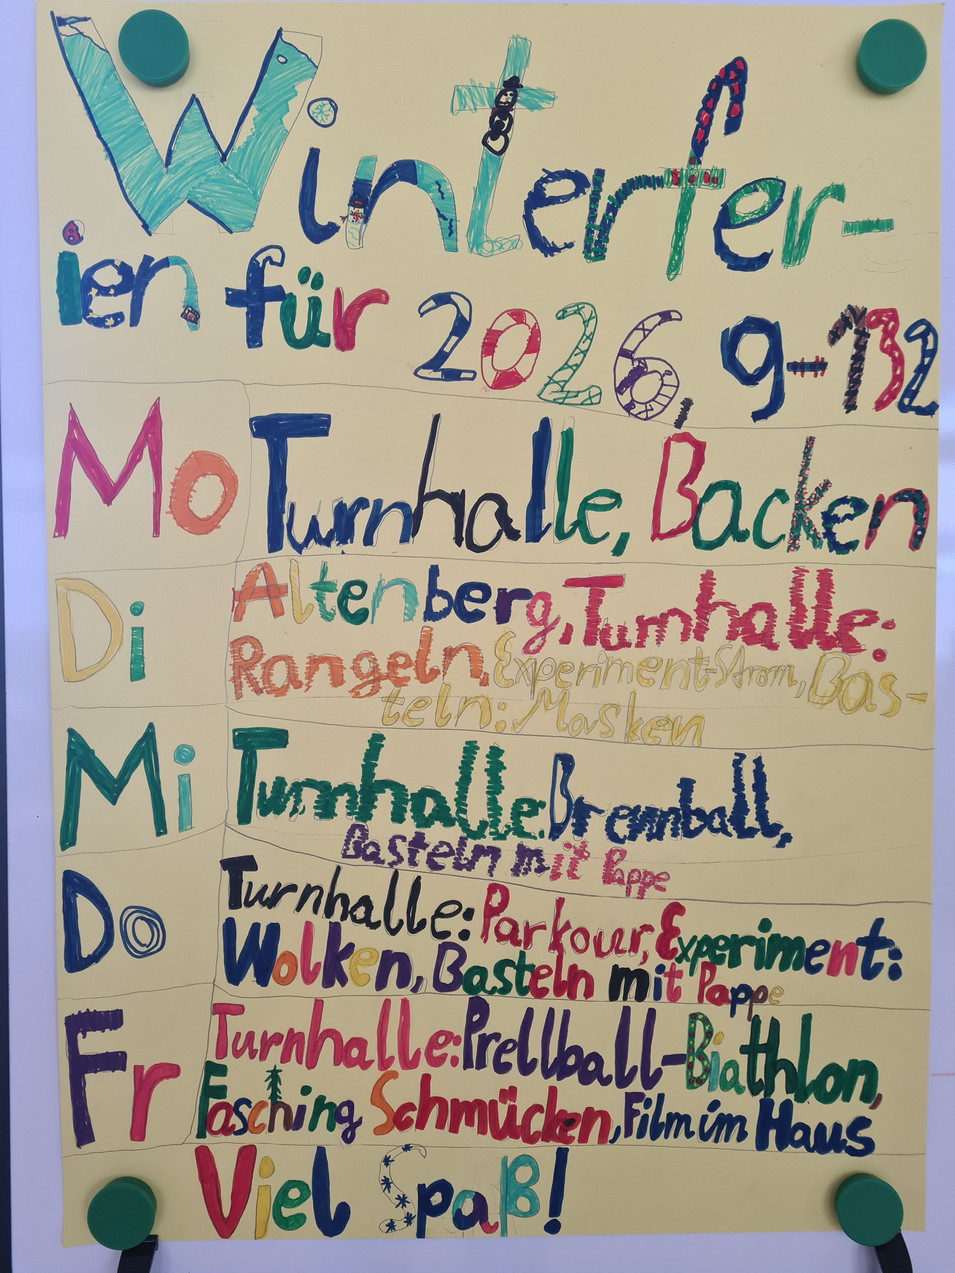 Winterfer-
ien für 2026, 9-132
Mo Turnhalle, Backen
Di Altenberg, Turnhalle:
Rangeln, Experiment-Strom, Bas-
teln: Masken
Mi Turnhalle: Brennball,
Basteln mit Pappe
Do Turnhalle: Parkour, Experiment:
Wolken, Basteln mit Pappe
Fr Turnhalle: Prellball-Biathlon,
Fasching Schmücken, Film im Haus
Viel Spaß!